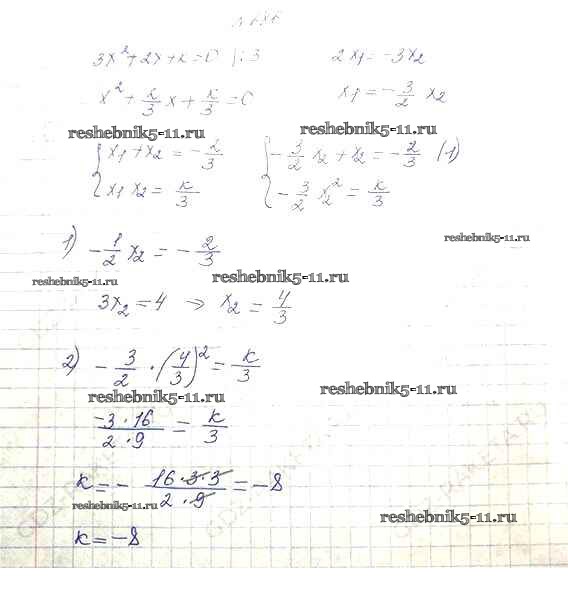 3x² + 2x + k = 0 |:3 2x₁ = -3x₂
x² + k/3 x + k/3 = 0 x₁ = -3/2 x₂
reshebnik5-11.ru reshebnik5-11.ru
{ x₁ + x₂ = -2/3 { -3/2 x₂ + x₂ = -2/3 (1)
x₁ x₂ = k/3 -3/2 x₂² = k/3
1) -1/2 x₂ = -2/3 reshebnik5-11.ru
reshebnik5-11.ru reshebnik5-11.ru
3x₂ = 4 ⇒ x₂ = 4/3
2) -3/2 · (4/3)² = k/3
reshebnik5-11.ru reshebnik5-11.ru
-3·16/2·9 = k/3
k = - 16·3·3/2·9 = -8
reshebnik5-11.ru reshebnik5-11.ru
k = -8